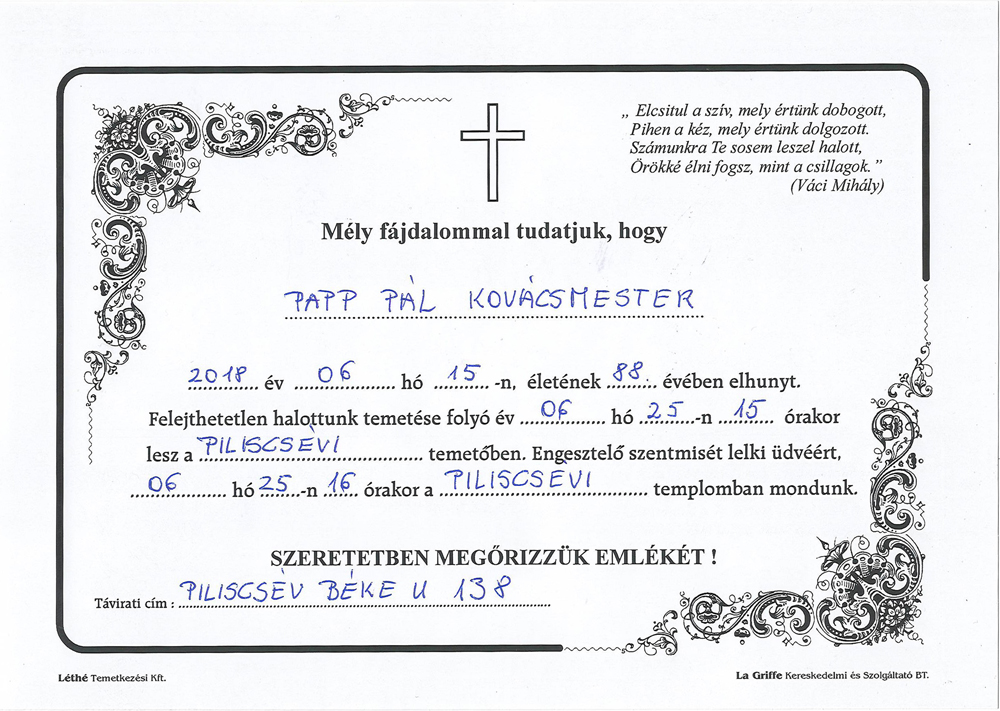 „ Elcsitul a szív, mely értünk dobogott,
Pihen a kéz, mely értünk dolgozott.
Számunkra Te sosem leszel halott,
Örökké élni fogsz, mint a csillagok. ”
(Váci Mihály)
Mély fájdalommal tudatjuk, hogy
PAPP PÁL KOVÁCSMESTER
2018 év 06 hó 15 -n, életének 88. évében elhunyt.
Felejthetetlen halottunk temetése folyó év 06 hó 25 -n 15 órakor
lesz a PILISCSÉVI temetőben. Engesztelő szentmisét lelki üdvéért,
06 hó 25 -n 16 órakor a PILISCSÉVI templomban mondunk.
SZERETETBEN MEGŐRIZZÜK EMLÉKÉT !
Távirati cím : PILISCSÉV BÉKE U 138
Léthé Temetkezési Kft.
La Griffe Kereskedelmi és Szolgáltató BT.